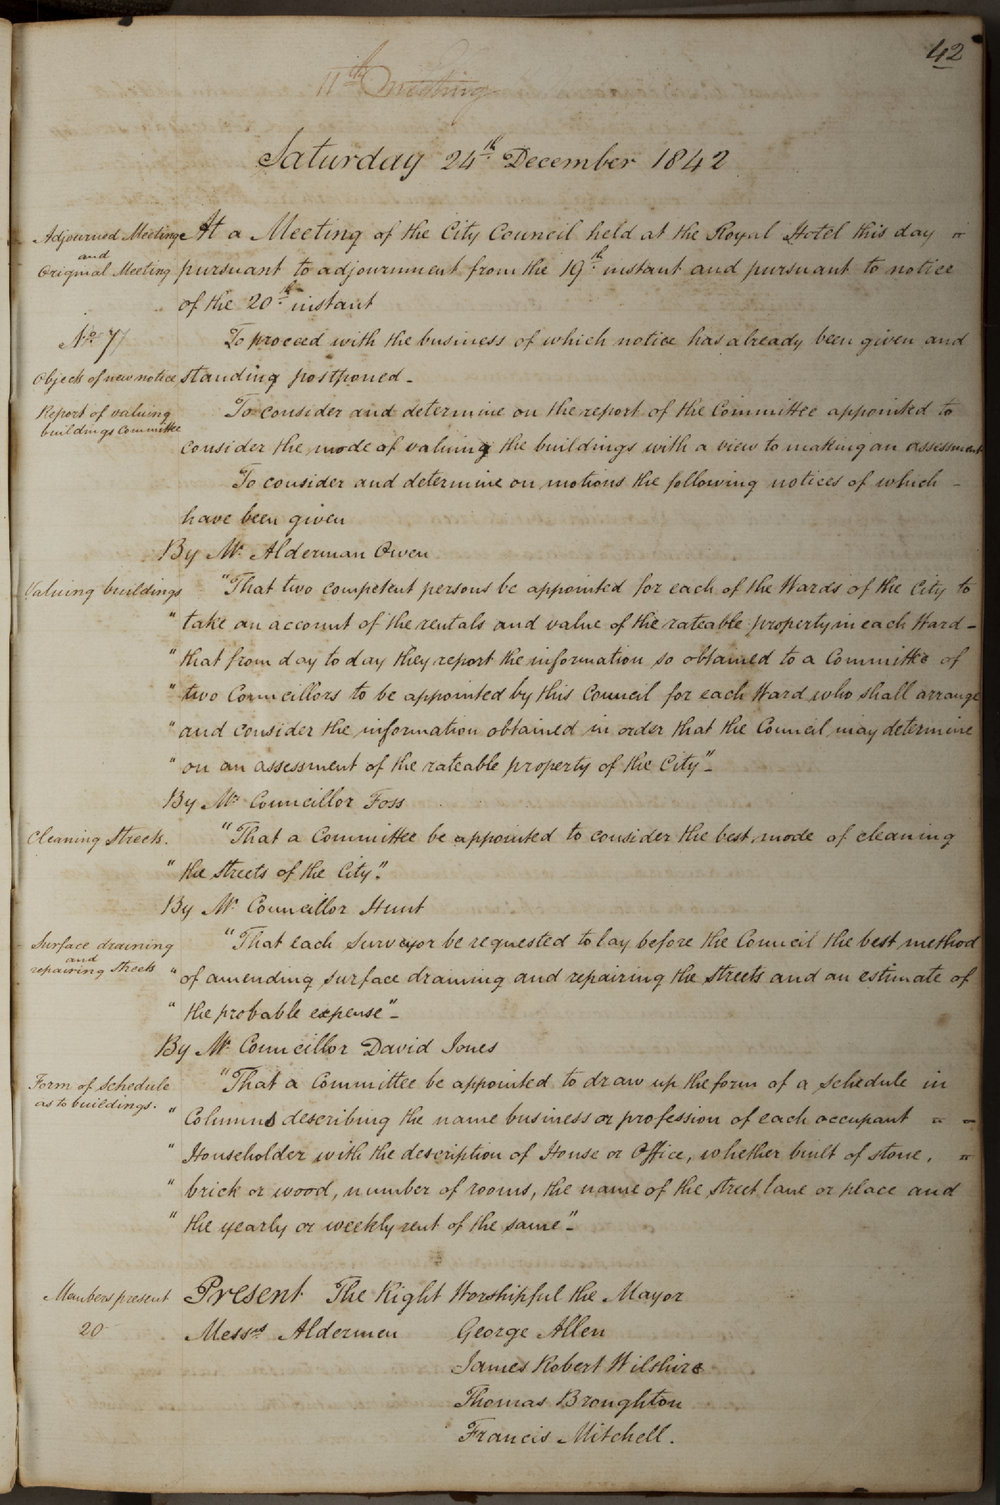 42
11th Meeting
Saturday 24th December 1842
Adjourned Meeting
and
Original Meeting
At a Meeting of the City Council held at the Royal Hotel this day
pursuant to adjournment from the 19th instant and pursuant to notice
of the 20th instant
No. 7/
To proceed with the business of which notice has already been given and
Object of new notice
standing postponed -
Report of valuing
buildings Committee
To consider and determine on the report of the Committee appointed to
consider the mode of valuing the buildings with a view to making an assessment
To consider and determine on motions the following notices of which -
have been given
By Mr. Alderman Owen
Valuing buildings
"That two competent persons be appointed for each of the Wards of the City to
" take an account of the rentals and value of the rateable property in each Ward -
" that from day to day they report the information so obtained to a Committee of
" two Councillors to be appointed by this Council for each Ward who shall arrange
" and consider the information obtained in order that the Council may determine
" on an assessment of the rateable property of the City" -
By Mr. Councillor Foss
Cleaning Streets.
"That a Committee be appointed to consider the best mode of cleaning
" the Streets of the City".
By Mr. Councillor Hunt
Surface draining
and
repairing Streets
"That each Surveyor be requested to lay before the Council the best method
" of amending surface draining and repairing the Streets and an estimate of
" the probable expense" -
By Mr. Councillor David Jones
Form of Schedule
as to buildings.
"That a Committee be appointed to draw up the form of a schedule in
" Columns describing the name business or profession of each occupant
" Householder with the description of House or Office, whether built of stone,
" brick or wood, number of rooms, the name of the street lane or place and
" the yearly or weekly rent of the same" -
Members present
20
Present The Right Worshipful the Mayor
Messrs Aldermen George Allen
James Robert Wilshire
Thomas Broughton
Francis Mitchell.